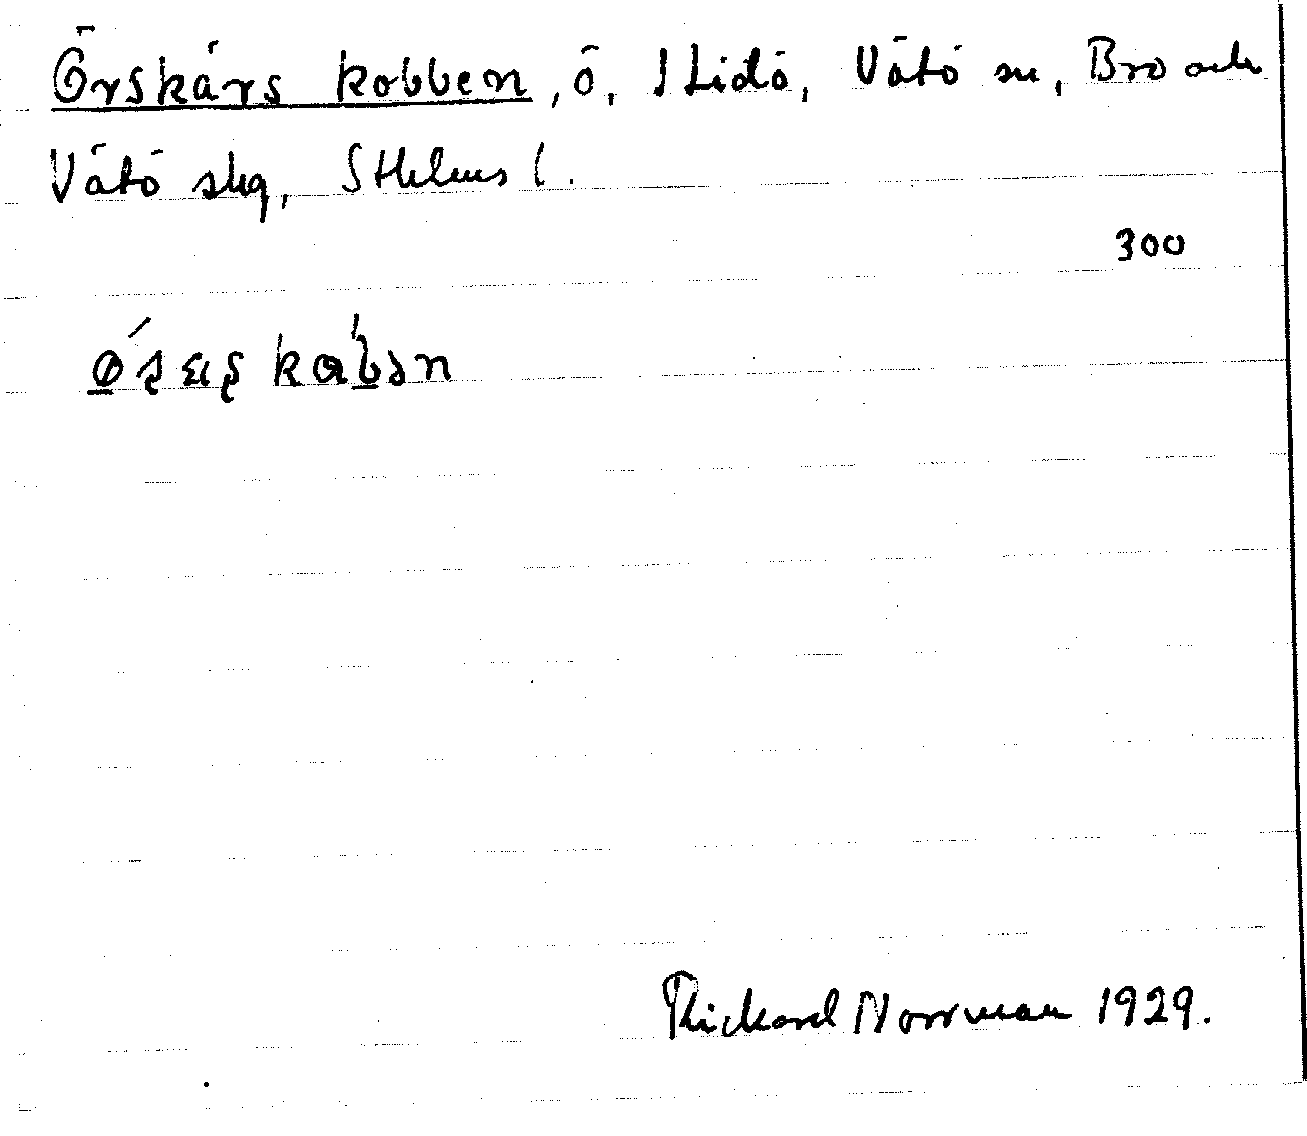 Örskärs kobben, ö, Lidö, Vätö sn, Bro och
Vätö skg, Sthlms l.
300
Rickard Norrman 1929.